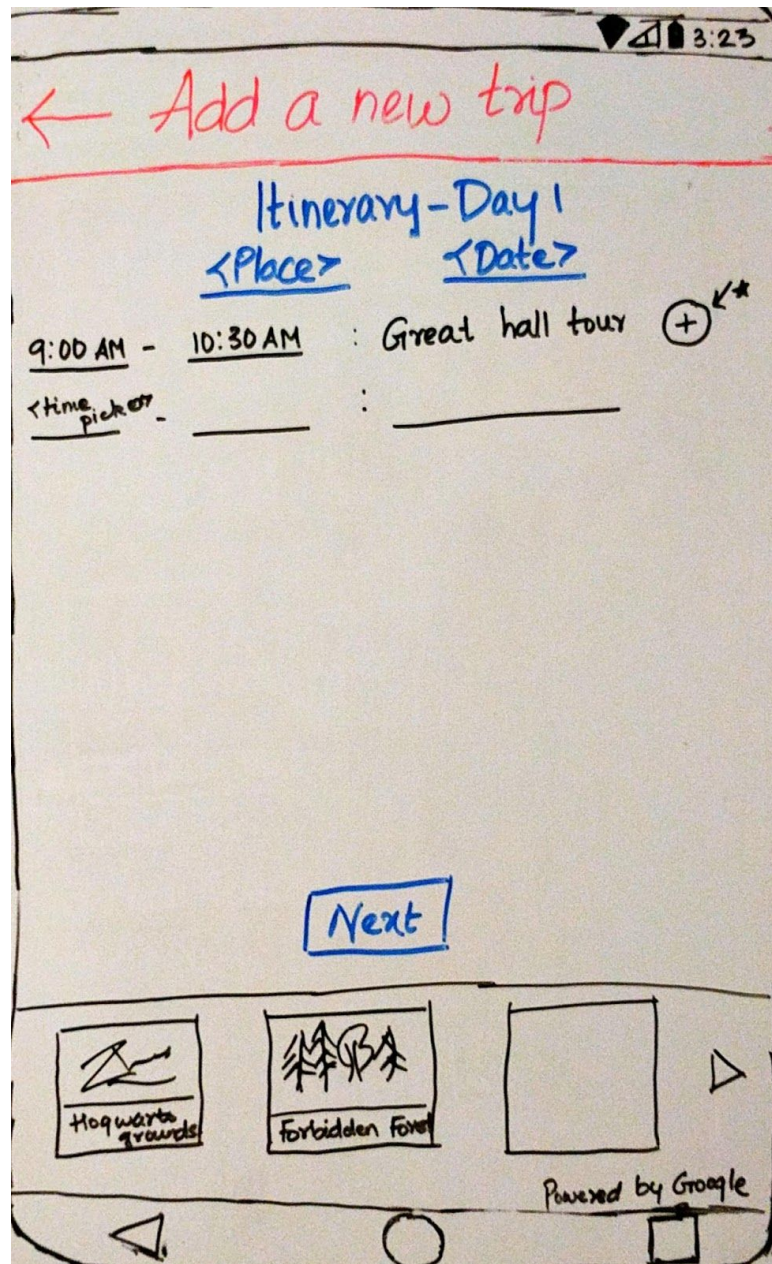 3:23
← Add a new trip
Itinerary - Day 1
<Place> <Date>
9:00 AM - 10:30 AM : Great hall tour + *
<time picker> - :
Next
Hogwarts grounds
Forbidden Forest
Powered by Google